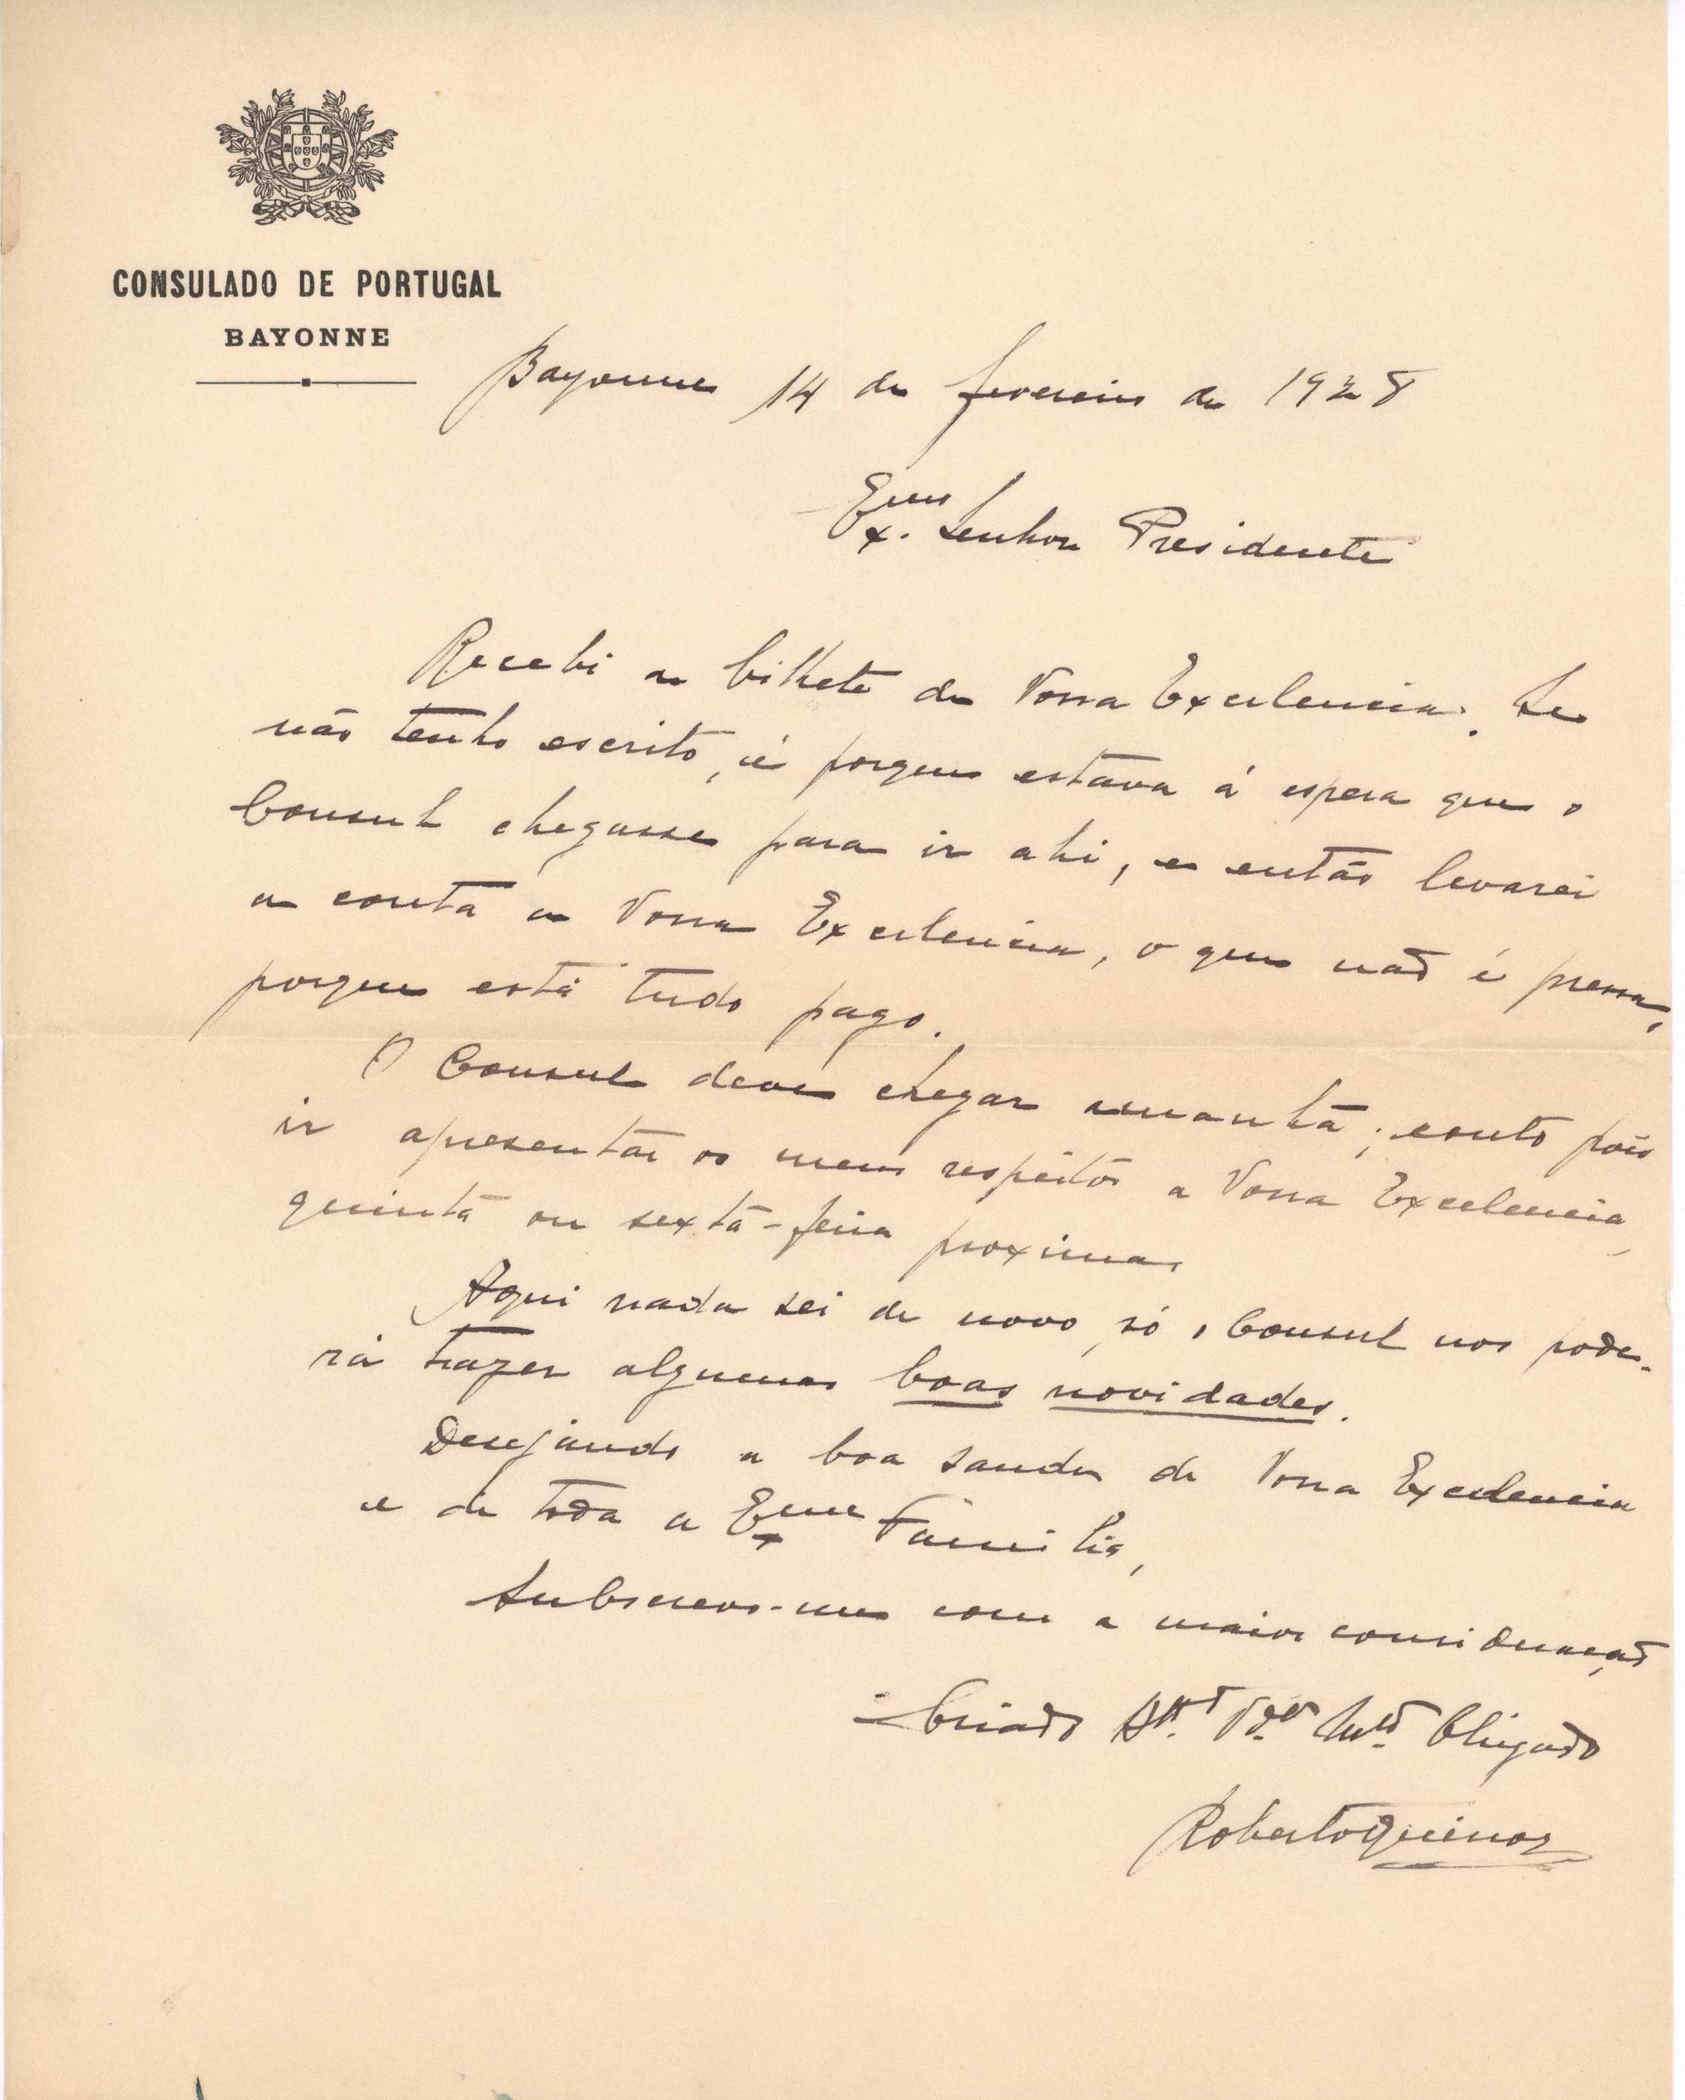 CONSULADO DE PORTUGAL
BAYONNE
Bayonne 14 de fevereiro de 1928
Ex.mo Senhor Presidente
Recebi o bilhete de Vossa Excelencia. Se
não tenho escrito, é porque estava á espera que o
Consul chegasse para ir ahi, e então levarei
a conta a Vossa Excelencia, o que não é pressa,
porque está tudo pago.
O Consul deve chegar amanhã; conto pois
ir apresentar os meus respeitos a Vossa Excelencia,
quinta ou sexta-feira proxima.
Aqui nada sei de novo, só o Consul nos pode-
rá trazer algumas boas novidades.
Desejando a boa saude de Vossa Excelencia
e de toda a Ex.ma Familia,
Subscrevo-me com a maior consideração
Criado Att.º V.dor Mt.º Obrigado
Roberto